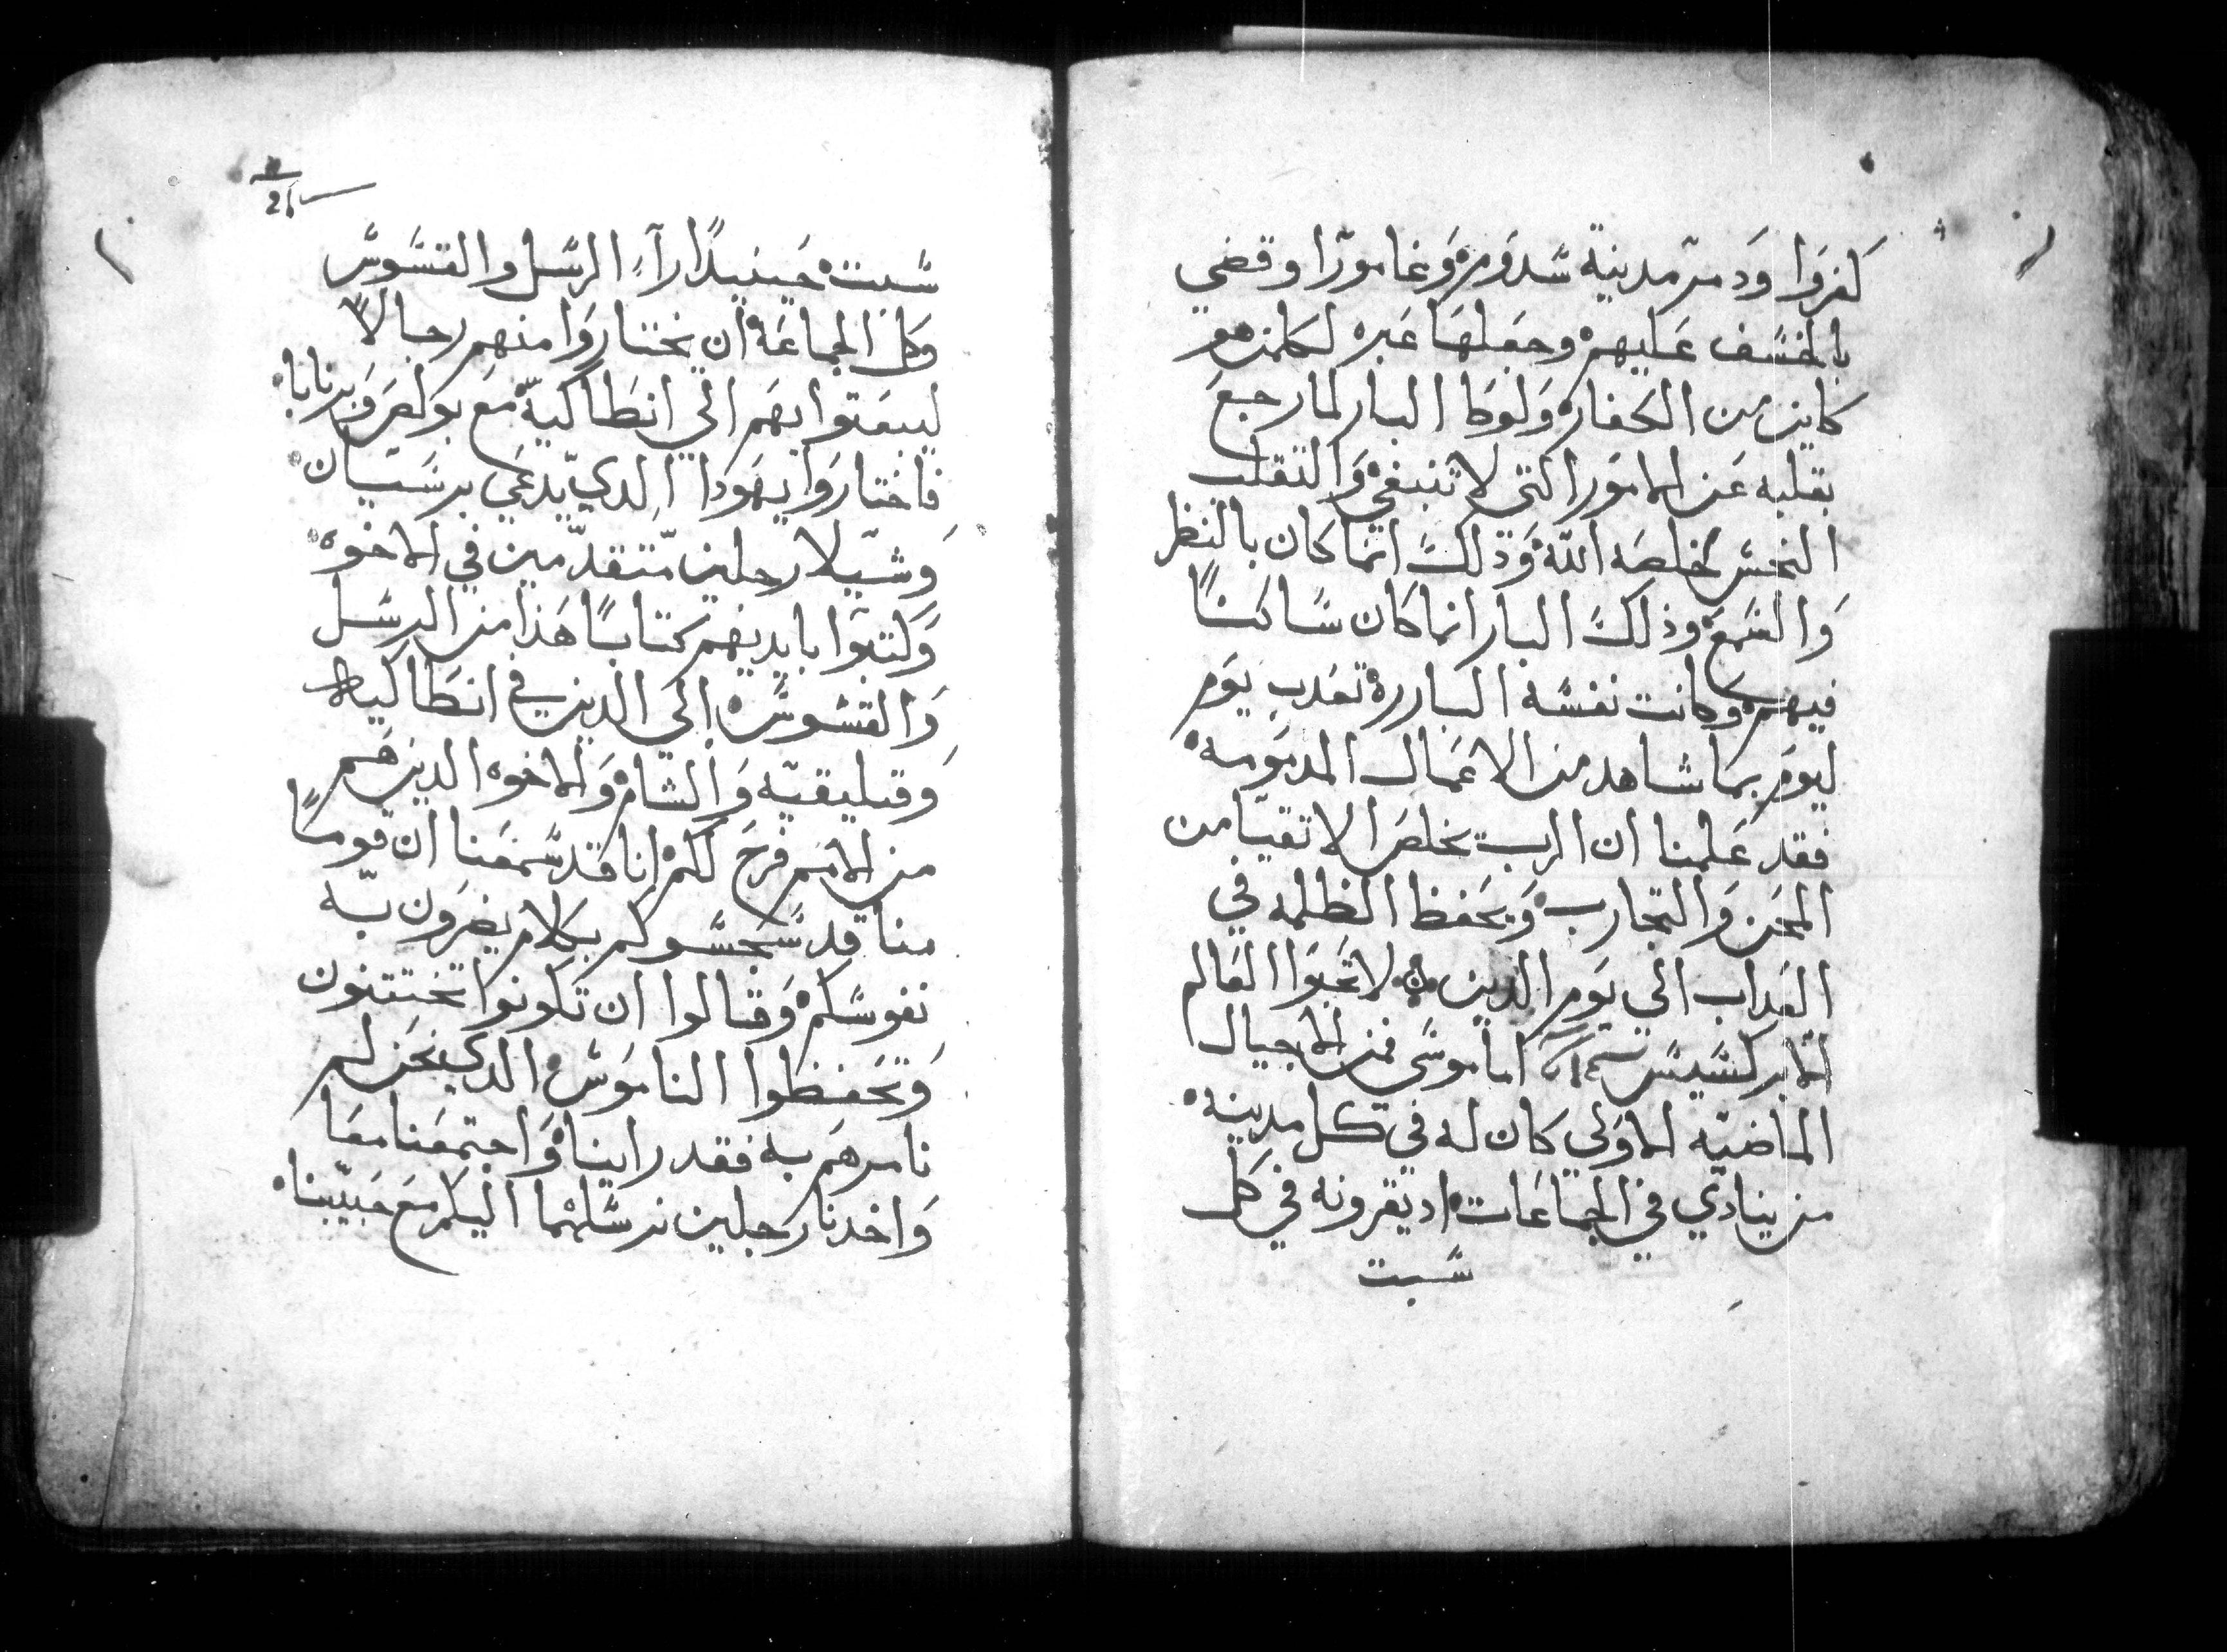 كفروا ودمر مدينة سدوم وغامورا وقضي
بالخسف عليهم وجعلها عبره لكلمن هو
كاين من الكفار ولوطا البار لما رجع
بقلبه عن الامور التي لا تنبغي والتقلب
النجس خلصه الله وذلك انما كان بالنظر
والسمع وذلك البار انما كان ساكنًا
فيهم وكانت نفسه الباررة تعدب يوم
ليوم بما شاهد من الاعمال المدمومه
فقد علمنا ان الرب يخلص الاتقيا من
المحن والتجارب ويحفظ الظلمه في
العداب الي يوم الدين لا تحبوا العالم
الابركسيس اما موسى فمن الاجيال
الماضيه الاولى كان له في كل مدينة
من ينادي في الجماعات اد يقرونه في كل
سبت
26
سبت حينيدًا رآء الرسل والقسوس
وكل الجماعة ان يختاروا منهم رجالًا
ليبعتوا بهم الي انطاكية مع بولص وبرنابا
فاختاروا يهودا الدي يدعي برسبان
وشيلا رجلين متقدمين في الاخوه
وكتبوا بايديهم كتابًا هذا من الرسل
والقسوس الى الدين في انطاكية
وقيليقيه والشام والاخوه الدين هم
من الامم فرح لكم انا قد سمعنا ان قومًا
منا قد سجسوكم بكلام يضرون به
نفوسكم وقالوا ان تكونوا تختتنون
وتحفظوا الناموس الدي نحن لم
نامرهم به فقد راينا واجتمعنا معا
واخدنا رجلين نرسلهما اليكم مع حبيبنا